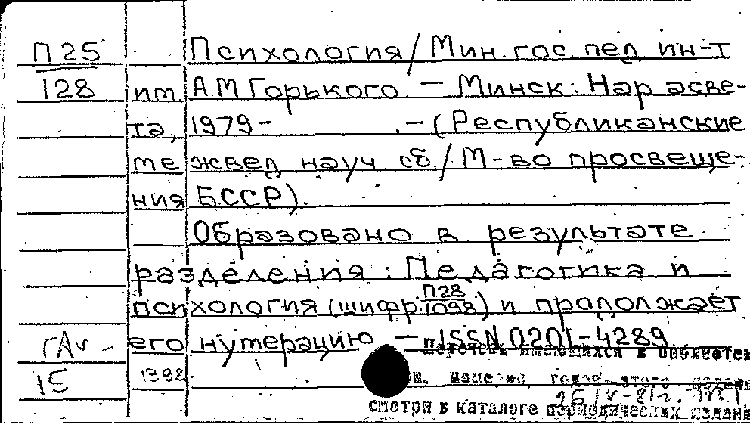 П25 Психология / Мин. гос. пед. ин-т
128 им. А.М. Горького. — Минск: Нар. асве-
та, 1979 - . — (Республиканские
межвед. науч. сб. / М-во просвеще-
ния БССР).
Образовано в результате
разделения: Педагогика и
психология (шифр П28/1098) и продолжает
его нумерацию — ISSN 0201-4289
15 1992
смотри в каталоге периодических издани